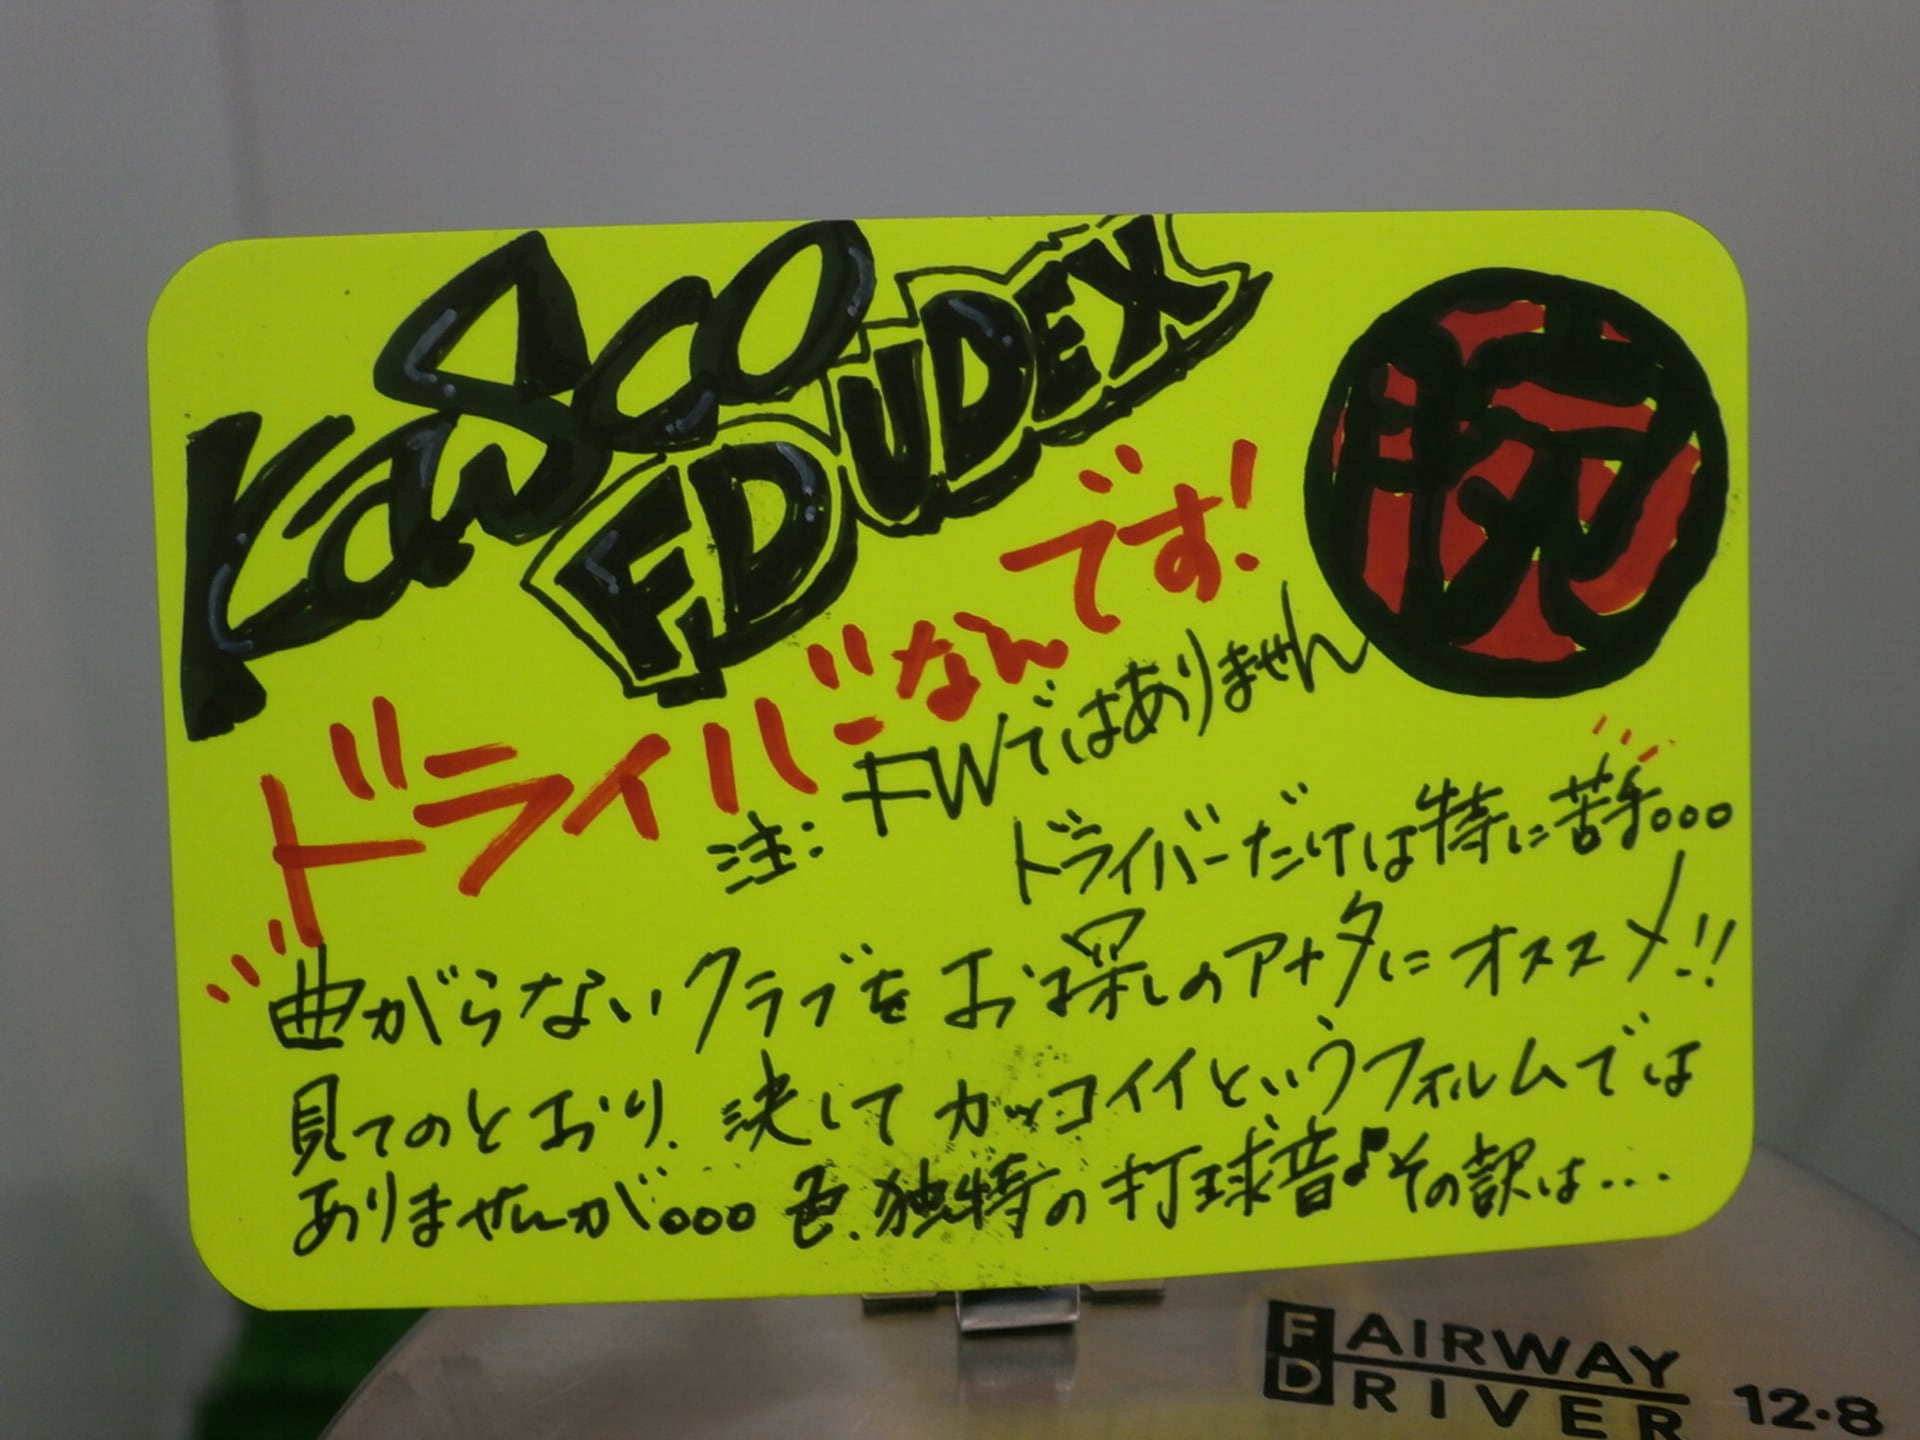 Kasco
F.D UDEX
腕
ドライバーなんです!
注:FWではありません
ドライバーだけは特に苦手。。。
曲がらないクラブをお探しのアナタにオススメ!!
見てのとおり、決してカッコイイというフォルムでは
ありませんが。。。色、独特の打球音♪その訳は...
FAIRWAY
DRIVER 12・8